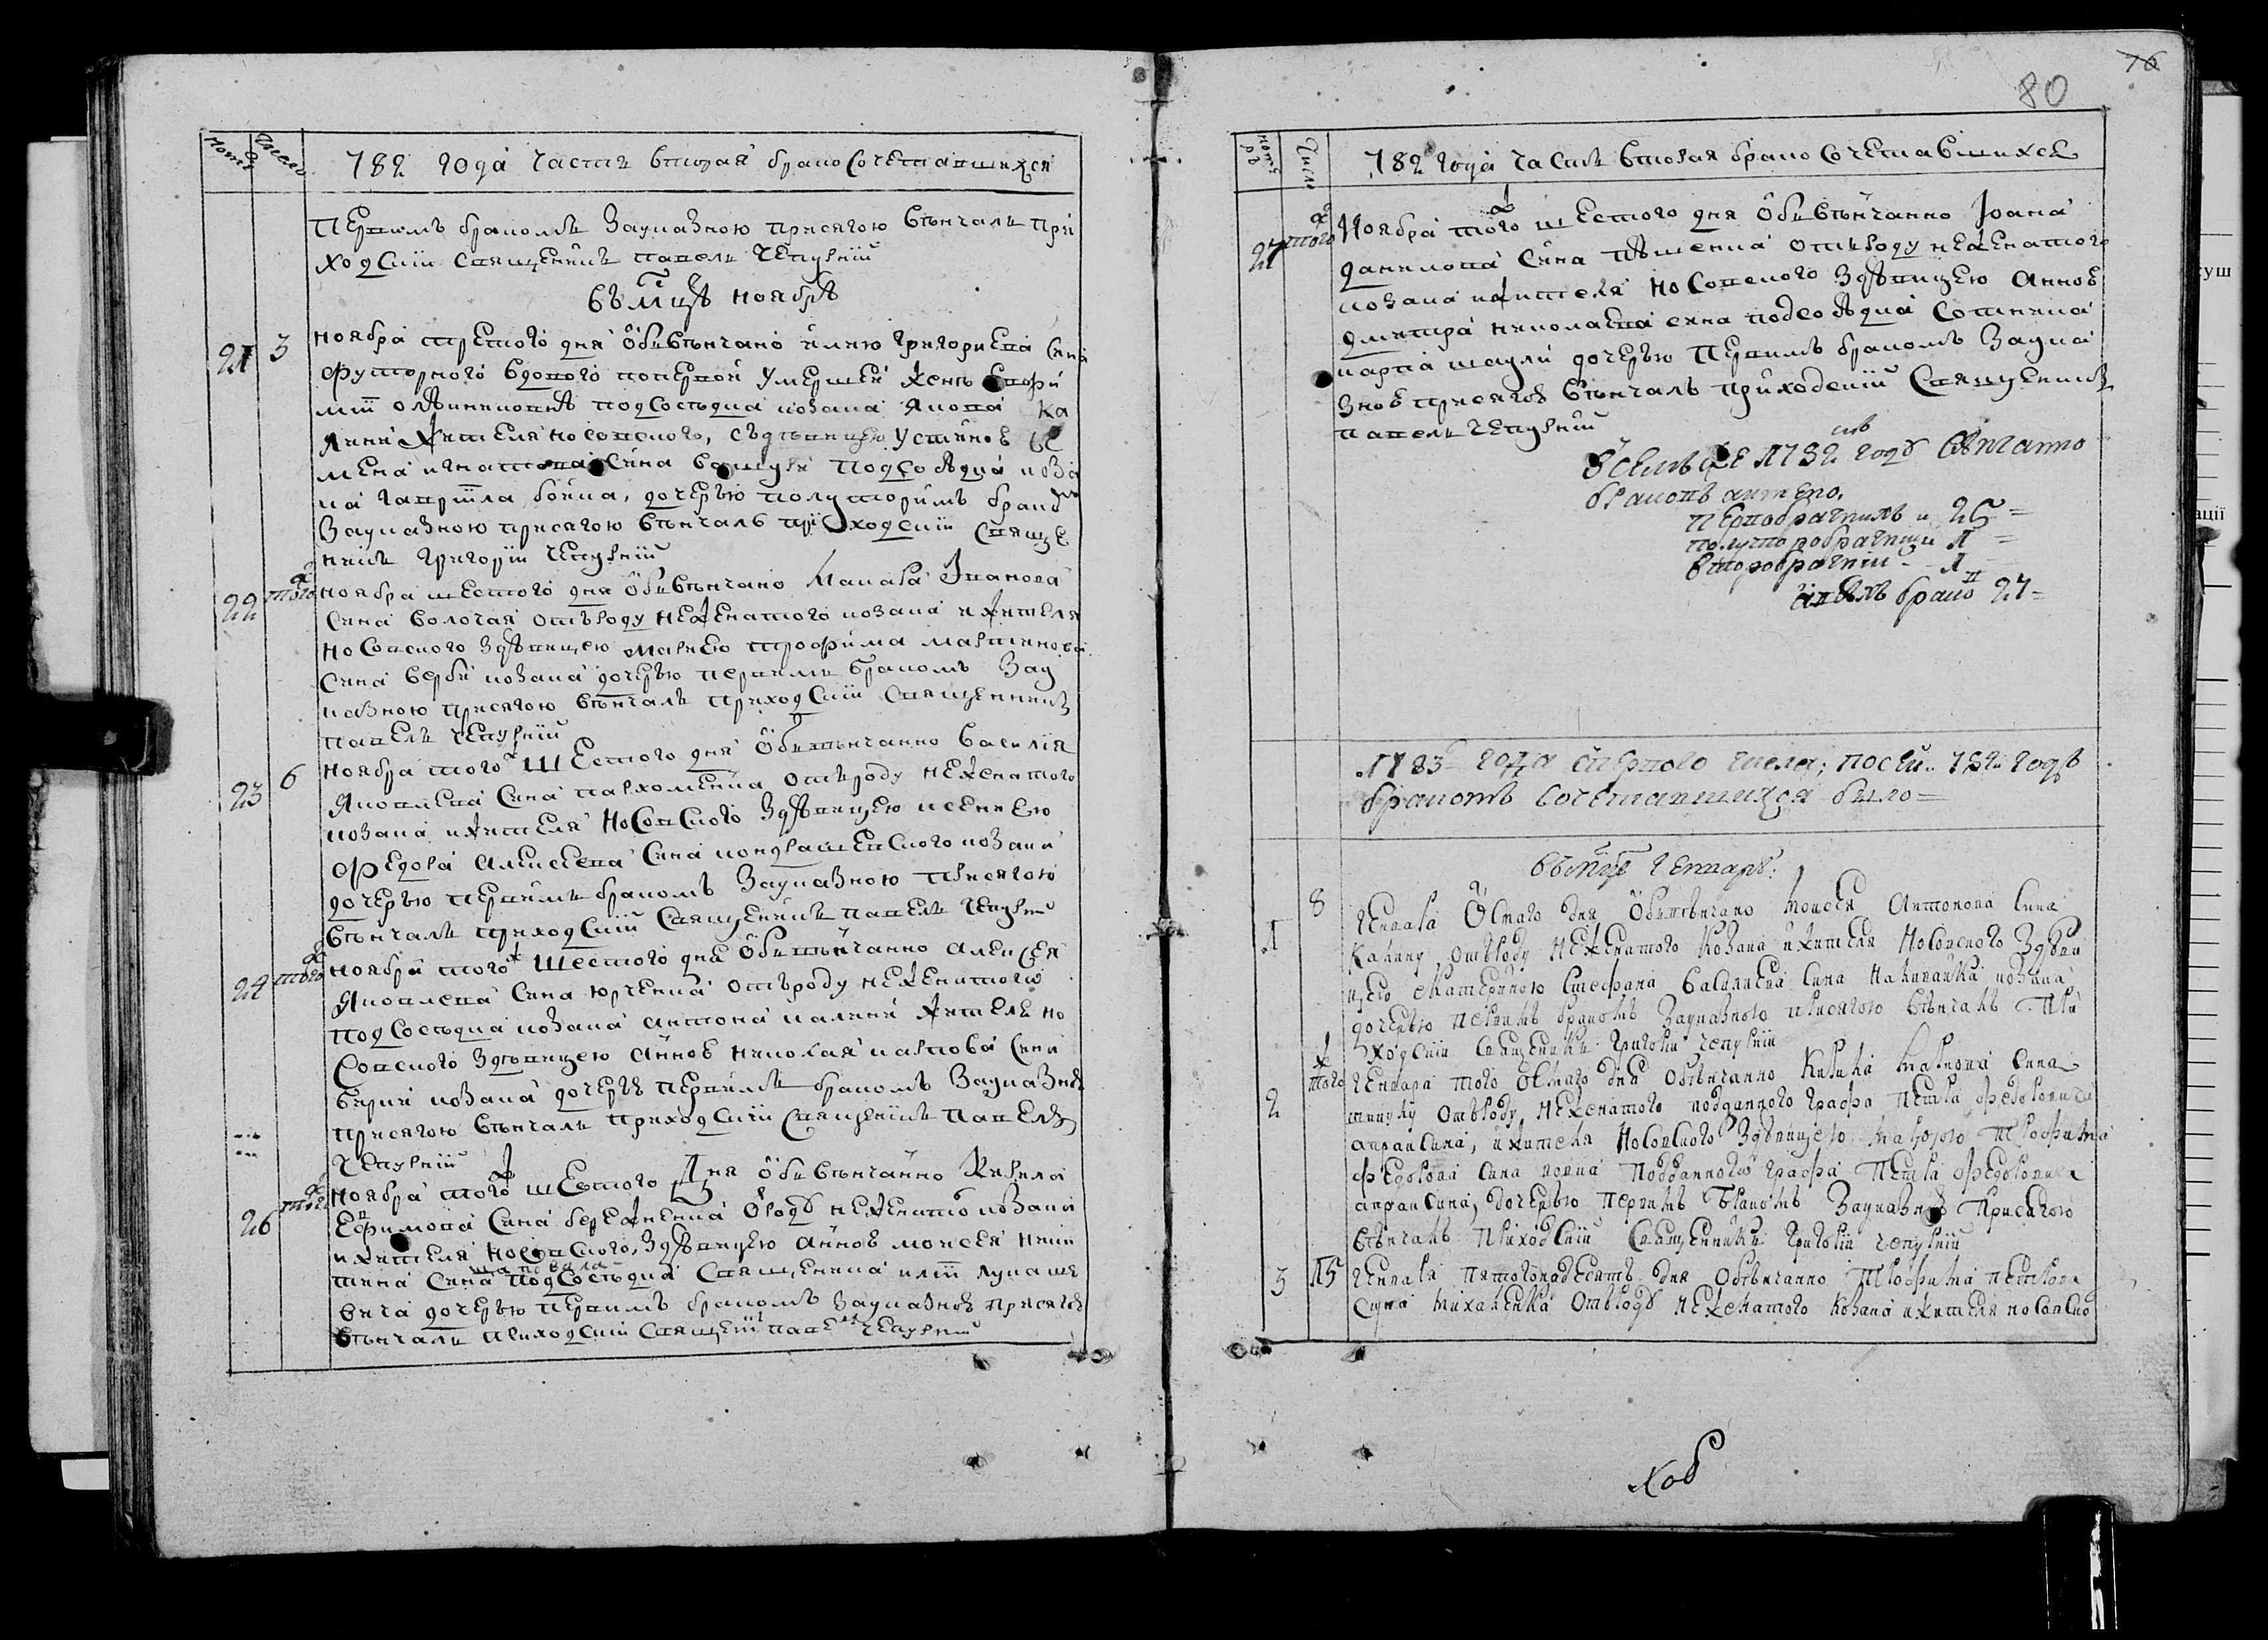 Номѣ Число 782 года часть вторая брако сочетавшихся
первимъ бракомъ заукавною присягою вѣнчалъ при
ходскій священикъ павелъ чепурній
въ мцѣ ноябрѣ
21 3 ноября третого дня обвѣнчано илию григориева сина
футорного вдового поперной умершей женѣ
подсосѣдка козака якова ка
жителя носовского, съдѣвицею устиною
мена игнатова сина подсосѣдка коза
ка гаврїила бойка, дочерью полуторимъ брако
заукавною присягою вѣнчалъ приходскій свяще
никъ григорій чепурній
22 тогож ноября шестого дня обвѣнчано макара іванова
сина волочая отъроду неженатого козака ижителя
носовского здѣвицею мариею трофима мартинова
сина верби козака дочерью первимъ бракомъ зау
кавною присягою вѣнчалъ приходскій священникъ
павелъ чепурній
23 6 ноября того ж шестого дня обвѣнчанно василия
яковлева сина пархоменка отъроду неженатого
козака ижителя носовского здѣвицею ксениею
федора алексеева сина кондрашевского козака
дочерью первимъ бракомъ заукавною присягою
вѣнчалъ приходскій священикъ павелъ чепурній
24 тогож ноября того ж шестого дня обвѣнчанно алексея
яковлева сина юрченка отъроду неженатого
подсосѣдка козака антона калени жителя но
совского здѣвицею анною николая карпова сина
козака дочерю первимъ бракомъ заукавною
присягою вѣнчалъ приходскій священикъ павелъ
чепурній
26 тогож ноября того ж шестого дня обвѣнчанно кирила
ефимова сина бережненка отроду неженато козака
ижителя носовского, здѣвицею анною моисея ники
тина сина шаповала подсосѣдка священика илїи лукаше
вича дочерью первимъ бракомъ заукавною присягою
вѣнчалъ приходскій священїк павел чепурній
80 76
Номѣръ Число 782 года часть вторая брако сочетавшихся
27 тогож Ноября того ж шестого дня обвѣнчанно Іоана
данилова сина отъроду неженатого
козака ижителя носовского здѣвицею анною
дмитра николаева сина подсосѣдка сотника
карпа шаули дочерью первимъ бракомъ заука
вною присягою вѣнчалъ приходский священикъ
павелъ чепурній
Всемъ же 1782 году вѣнчанно
браковъ
первобрачнихъ 25
полуторобрачний 1
второбрачний 1
всѣхъ брако 27
1783 года сперваго числа, посей 782 годъ
браковъ сочетавшихся было
въ мцѣ генварѣ:
1 8 генвара осмаго дня обвѣнчано моисея антонова сина
отъроду неженатого козака ижителя носовского здѣви
цею екатериною стефана василиева сина наливайка козака
дочерью первимъ бракомъ заукавною присягою вѣнчалъ при
ходскій священикъ григорій чепурній
2 тогож генвара того осмаго дня обвѣнчанно кирила маркова сина
отъроду неженатого подданного графа петра федоровича
апраксина, ижителя носовского здѣвицею трофима
федорова сина подданного графа петра федоровича
апраксина, дочерью первимъ бракомъ заукавною присягою
вѣнчалъ приходскій священникъ григорій чепурній
3 15 генвара пятогонадесять дня обвѣнчанно трофима петрова
сина михаленка отъроду неженатого козака ижителя носовско